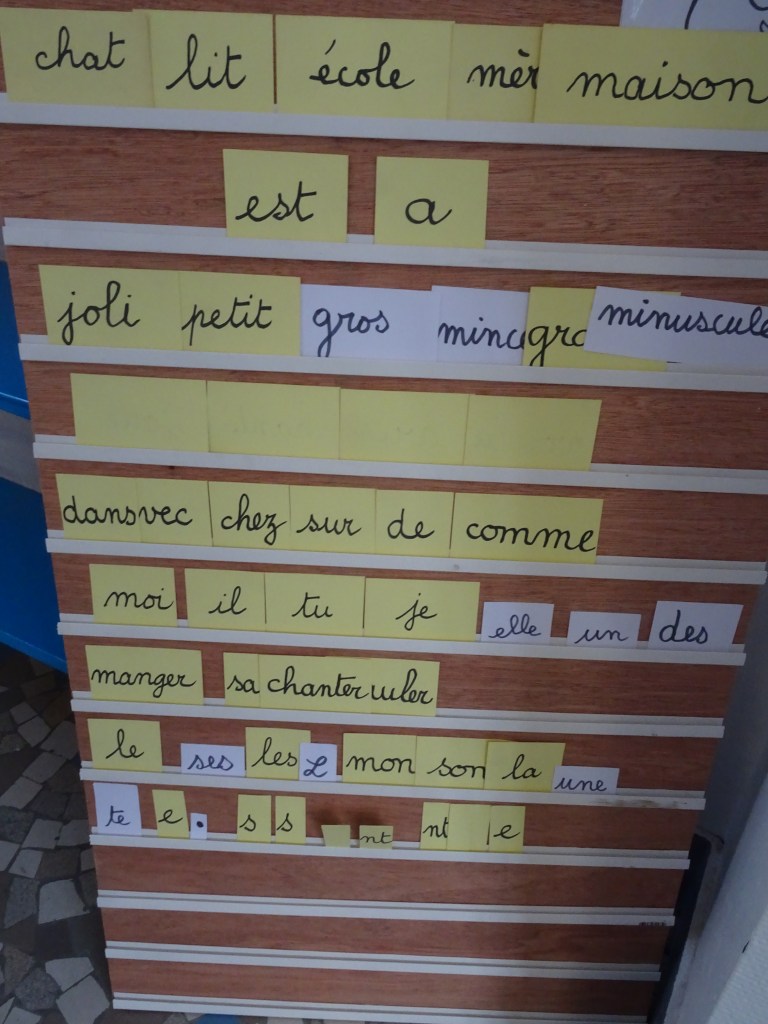 chat lit école mèr maison
est a
joli petit gros minu gro minuscule
dans vec chez sur de comme
moi il tu je elle un des
manger sa chanter uler
le ses les L mon son la une
te e . s s nt nt e